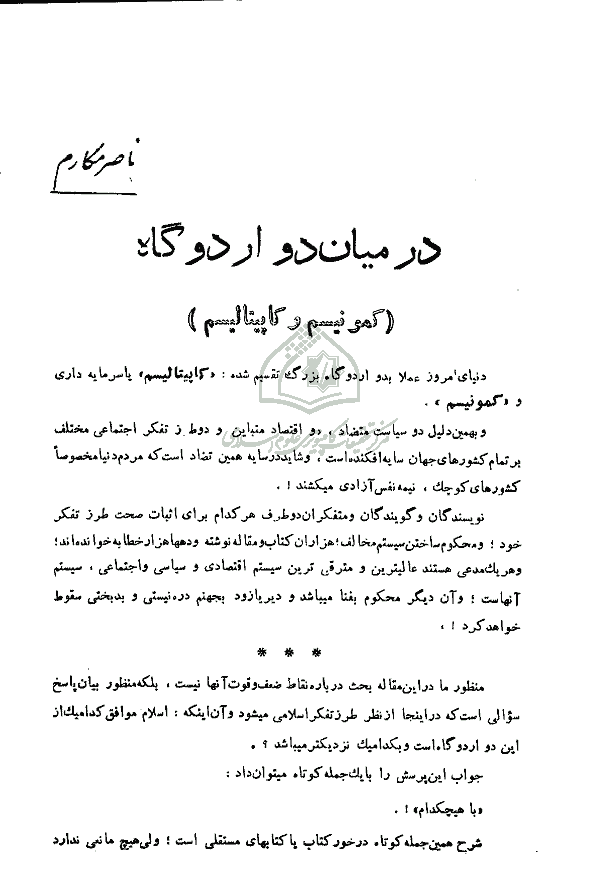 ناصر مکارم
در میان دو اردوگاه
(کمونیسم و کاپیتالیسم)
دنیای امروز عملا بدو اردوگاه بزرگ تقسیم شده : «کاپیتالیسم» یاسرمایه داری
و «کمونیسم» .
و بهمین دلیل دو سیاست متضاد ، دو اقتصاد متباین و دوطرز تفکر اجتماعی مختلف
بر تمام کشورهای جهان سایه افکنده است ، وشاید درسایه همین تضاد است که مردم دنیا مخصوصاً
کشورهای کوچک ، نیمه نفس آزادی میکشند ! .
نویسندگان و گویندگان ومتفکران دوطرف هرکدام برای اثبات صحت طرز تفکر
خود ؛ ومحکوم ساختن سیستم مخالف؛ هزاران کتاب ومقاله نوشته ودهها هزار خطابه خوانده اند؛
وهریك مدعی هستند عالیترین و مترقی ترین سیستم اقتصادی و سیاسی واجتماعی ، سیستم
آنهاست ؛ وآن دیگر محکوم بفنا میباشد و دیریازود بجهنم دره نیستی و بدبختی سقوط
خواهد کرد ! .
* * *
منظور ما دراین مقاله بحث درباره نقاط ضعف وقوت آنها نیست ، بلکه منظور بیان پاسخ
سؤالی است که دراینجا از نظر طرز تفکر اسلامی میشود وآن اینکه : اسلام موافق کدامیك از
این دو اردوگاه است وبکدامیك نزدیکتر میباشد ؟ .
جواب این پرسش را بایك جمله کوتاه میتوان داد :
«با هیچکدام» ! .
شرح همین جمله کوتاه درخور کتاب یا کتابهای مستقلی است ؛ ولی هیچ مانعی ندارد